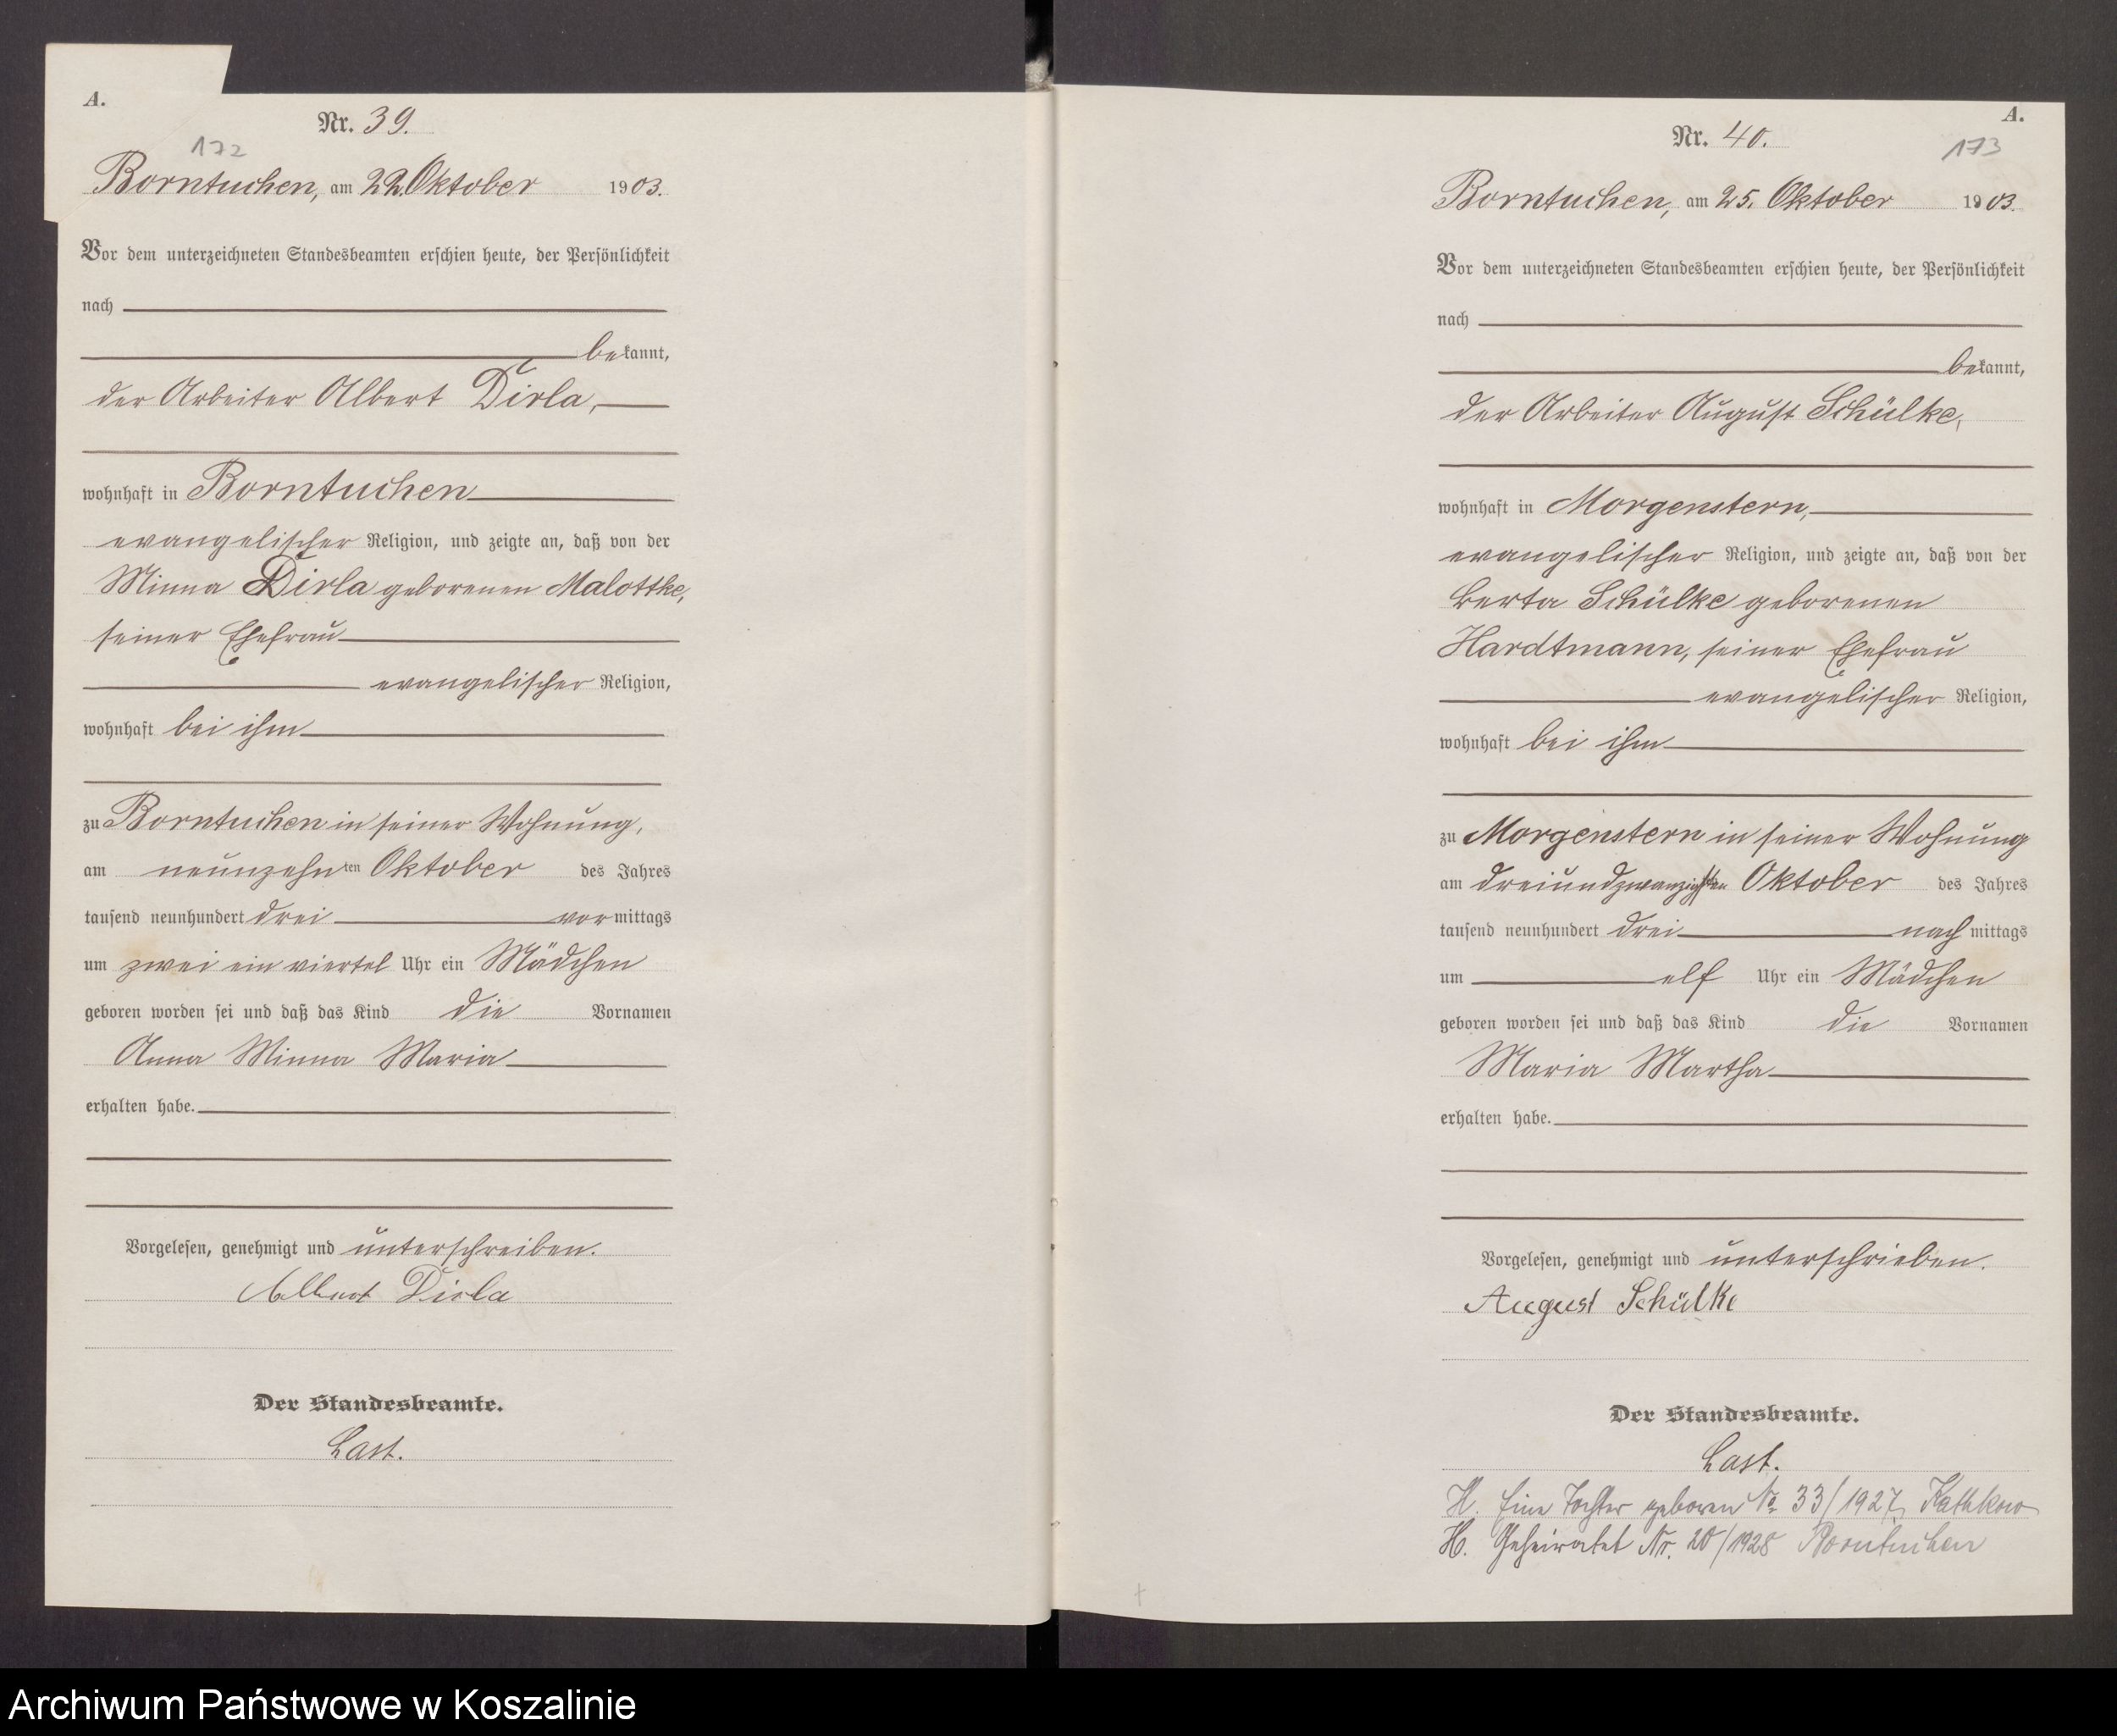 A.
Nr. 39.
172
Borntuchen, am 22. Oktober 1903.
Vor dem unterzeichneten Standesbeamten erschien heute, der Persönlichkeit
nach
bekannt,
der Arbeiter Albert Dirla,
wohnhaft in Borntuchen
evangelischer Religion, und zeigte an, daß von der
Minna Dirla geborenen Malottke,
seiner Ehefrau
evangelischer Religion,
wohnhaft bei ihm
zu Borntuchen in seiner Wohnung,
am neunzehnten Oktober des Jahres
tausend neunhundert drei vormittags
um zwei ein viertel Uhr ein Mädchen
geboren worden sei und daß das Kind die Vornamen
Anna Minna Maria
erhalten habe.
Vorgelesen, genehmigt und unterschreiben.
Albert Dirla
Der Standesbeamte.
Last.
A.
Nr. 40.
173
Borntuchen, am 25. Oktober 1903.
Vor dem unterzeichneten Standesbeamten erschien heute, der Persönlichkeit
nach
bekannt,
der Arbeiter August Schülke,
wohnhaft in Morgenstern,
evangelischer Religion, und zeigte an, daß von der
Berta Schülke geborenen
Hardtmann, seiner Ehefrau
evangelischer Religion,
wohnhaft bei ihm
zu Morgenstern in seiner Wohnung
am dreiundzwanzigsten Oktober des Jahres
tausend neunhundert drei nachmittags
um elf Uhr ein Mädchen
geboren worden sei und daß das Kind die Vornamen
Maria Martha
erhalten habe.
Vorgelesen, genehmigt und unterschrieben.
August Schülke
Der Standesbeamte.
Last.
H. Eine Tochter geboren No 33/1927, Kathkow
H. Geheiratet Nr. 20/1928 Borntuchen
Archiwum Państwowe w Koszalinie